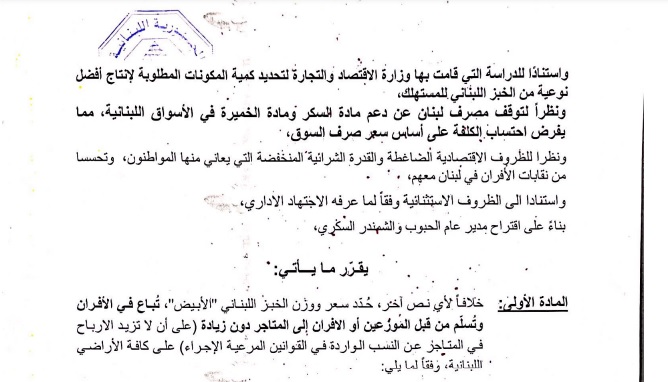 الجمهورية اللبنانية
واستنادًا للدراسة التي قامت بها وزارة الاقتصاد والتجارة لتحديد كمية المكونات المطلوبة لإنتاج أفضل
نوعية من الخبز اللبناني للمستهلك،
ونظراً لتوقف مصرف لبنان عن دعم مادة السكر ومادة الخميرة في الأسواق اللبنانية، مما
يفرض احتساب الكلفة على أساس سعر صرف السوق،
ونظرا للظروف الاقتصادية الضاغطة والقدرة الشرائية المنخفضة التي يعاني منها المواطنون، وتحسسا
من نقابات الأفران في لبنان معهم،
واستنادا الى الظروف الاستثنائية وفقاً لما عرفه الاجتهاد الاداري،
بناءً على اقتراح مدير عام الحبوب والشمندر السكري،
يقرّر ما يـــأتي:
المادة الأولى: خلافاً لأي نص آخر، حُدّد سعر ووزن الخبز اللبناني "الأبيض"، تُباع في الأفران
وتُسلّم من قبل المُوزّعين أو الافران إلى المتاجر دون زيادة (على أن لا تزيد الارباح
في المتاجر عن النسب الواردة في القوانين المرعية الإجراء) على كافة الأراضي
اللبنانية، وفقاً لما يلي: